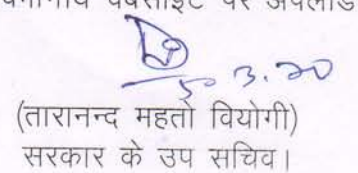 वेबसाईट पर अपलोड
3.20
(तारानन्द महतो वियोगी)
सरकार के उप सचिव।